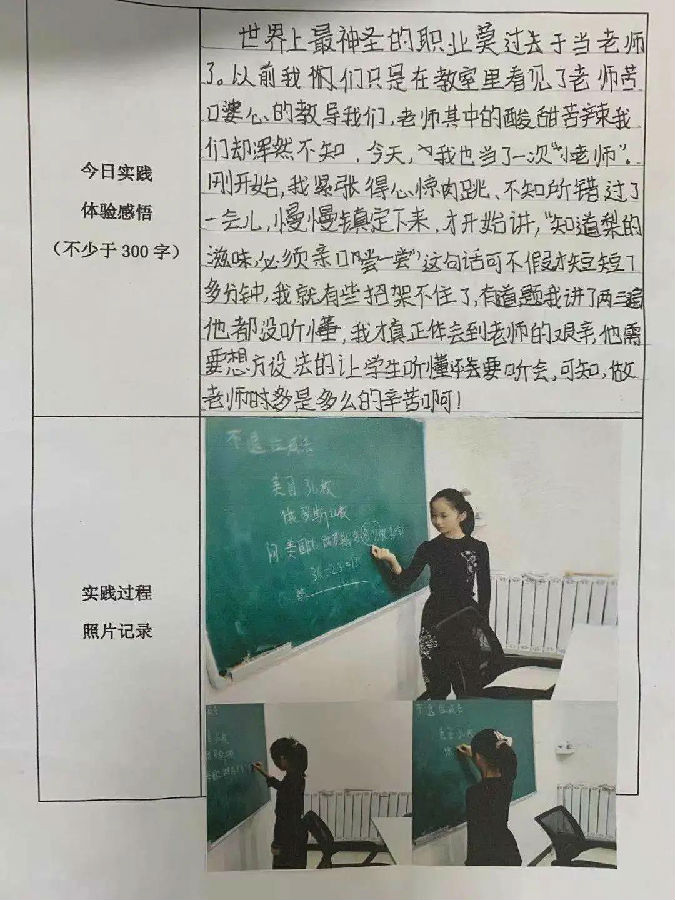 今日实践
体验感悟
（不少于 300 字）
世界上最神圣的职业莫过去于当老师
了。以前我们们只是在教室里看见了老师苦
口婆心的教导我们，老师其中的酸甜苦辣我
们却浑然不知．今天，我也当了一次“小老师”．
刚开始，我紧张得心惊肉跳、不知所错过了
一会儿，慢慢镇定下来，才开始讲，“知道梨的
滋味，必须亲口尝一尝”这句话可不假才短短了
多分钟，我就有些招架不住了，有道题我讲了两三遍
他都没听懂，我才真正体会到老师的艰辛，他需
要想方设法的让学生听懂还要听会，可知，做
老师时多是多么的辛苦啊！
实践过程
照片记录
美国
俄罗斯
问